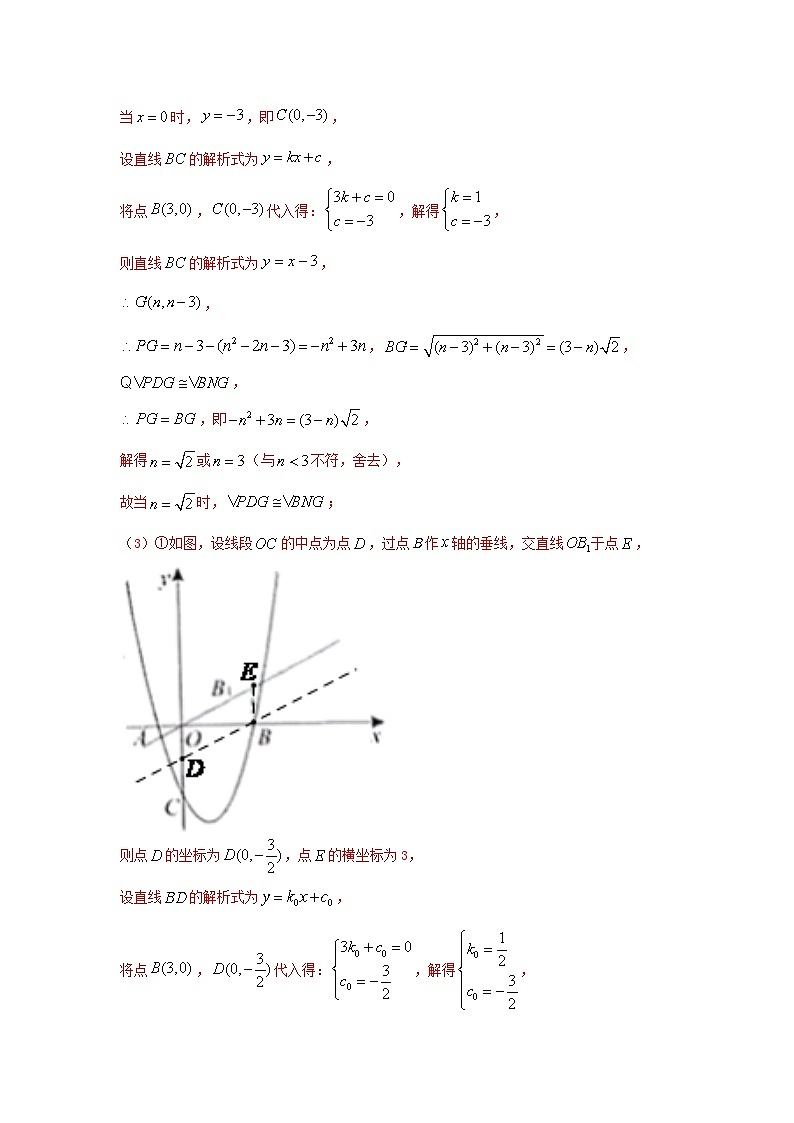 当x=0时，y=-3，即C(0,-3)，
设直线BC的解析式为y=kx+c，
将点B(3,0)，C(0,-3)代入得：{3k+c=0 c=-3，解得{k=1 c=-3，
则直线BC的解析式为y=x-3，
∴G(n,n-3)，
∴PG=n-3-(n²-2n-3)=-n²+3n，BG=√((n-3)²+(n-3)²)=(3-n)√2，
Q VPDG≅VBNG，
∴PG=BG，即-n²+3n=(3-n)√2，
解得n=√2或n=3（与n<3不符，舍去），
故当n=√2时，VPDG≅VBNG；
（3）①如图，设线段OC的中点为点D，过点B作x轴的垂线，交直线OB₁于点E，
y
E
B₁
A O B x
D
C
则点D的坐标为D(0,-3/2)，点E的横坐标为3，
设直线BD的解析式为y=k₀x+c₀，
将点B(3,0)，D(0,-3/2)代入得：{3k₀+c₀=0 c₀=-3/2，解得{k₀=1/2 c₀=-3/2，